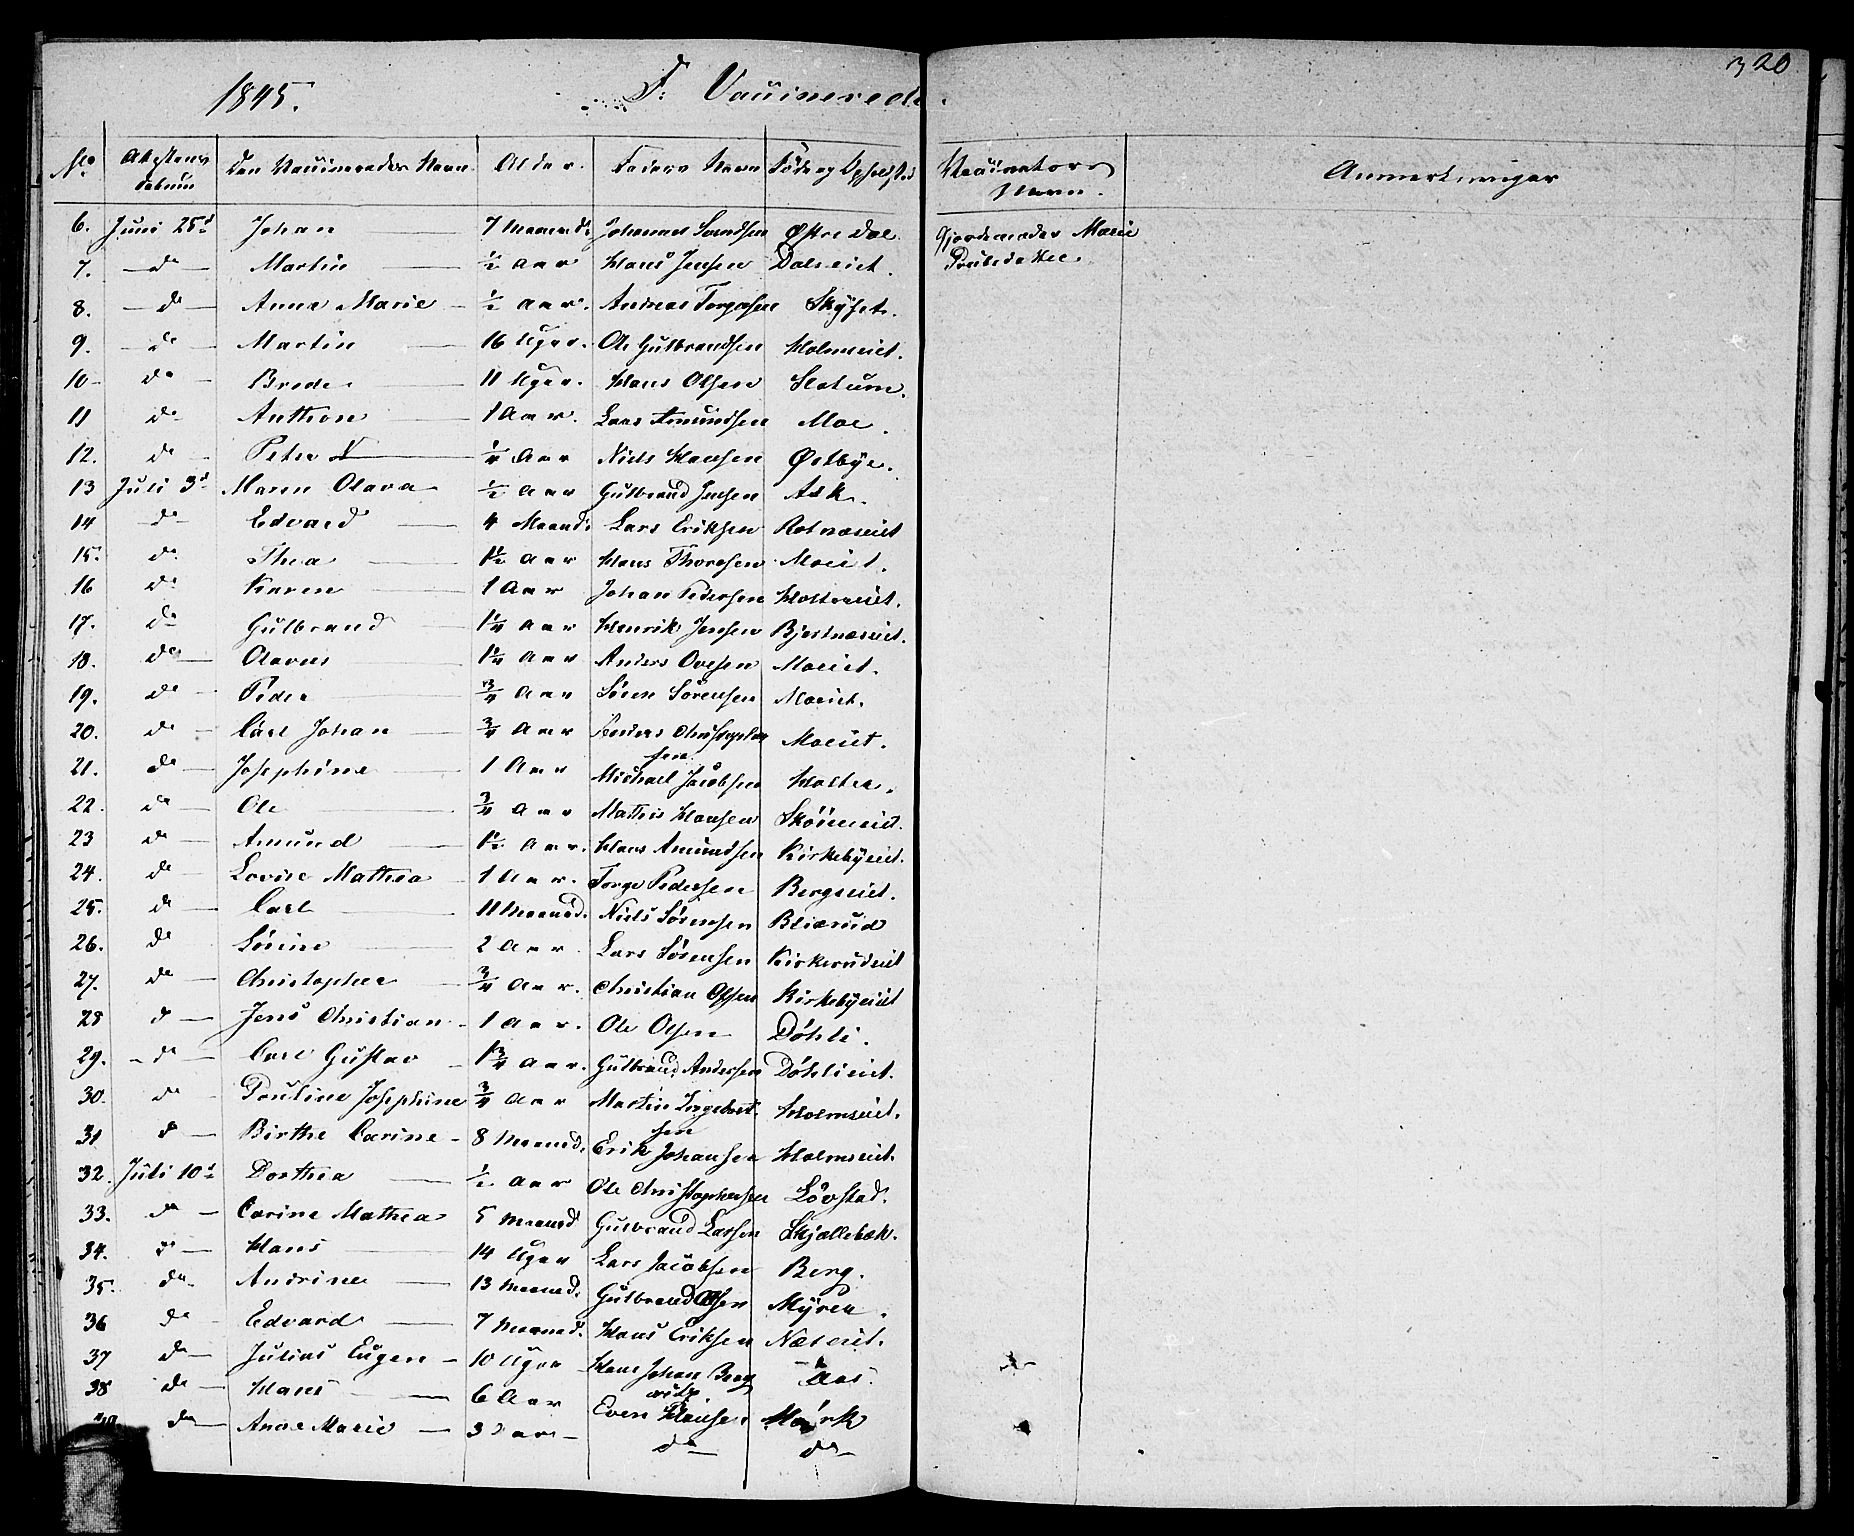 320
1845. F. Vaccinerede.
No. Attestens Datum Den Vaccineredes Navn Alder. Faders Navn Føde og Opholdssted Vaccinators Navn. Anmerkninger
6. Juni 25d Johan 7 Maaned. Johannes Svendsen Østre Dal. Gjordemoder Marie
7. do Martin ½ Aar Hans Jensen Dalseiet.
8. do Anna Marie ½ Aar. Andreas Torgersen
9. do Martin 16 Uger. Ole Gulbrandsen Holmseiet.
10 do Brede 11 Uger. Hans Olsen Slatum.
11 do Anthon 1 Aar. Lars Amundsen Moe.
12. do Peter ¼ Aar Niels Hansen Østbye.
13 Juli 3d Maren Olava ½ Aar Gulbrand Jensen Ask.
14 do Edvard 4 Maaned. Lars Eriksen Rotnæseiet
15. do Thea 1½ Aar Hans Thoresen Moeiet.
16 do Karen 1 Aar Johan Pedersen Holtereiet.
17. do Gulbrand 1¼ Aar Henrik Jensen Bjertnæseiet.
18. do Olavus 1¼ Aar Anders Ovesen Moeiet.
19. do Peder ¾ Aar Søren Sörensen Moeiet.
20. do Carl Johan ¾ Aar Anders Christophersen Moeiet.
21. do Josephine 1 Aar Michael Jacobsen Holter.
22. do Ole ¾ Aar Mathis Hansen
23 do Amund 1½ Aar. Hans Amundsen Kirkebyeiet.
24. do Lovise Mathea 1 Aar. Torge Pedersen Bergseiet.
25. do Carl 11 Maaned. Niels Sörensen
26. do Sörine 2 Aar Lars Sörensen Kirkerudeiet
27. do Christopher ¾ Aar. Christian Olsen Kirkebyeiet
28 do Jens Christian 1 Aar. Ole Olsen Döhli.
29. do Carl Gustav 1¾ Aar. Gulbrand Andersen Döhlieiet.
30. do Pauline Josephine ¾ Aar Martin Ingebretsen Holmseiet.
31 do Birthe Carine 8 Maaned. Erik Johansen Holmseiet.
32. Juli 10d Dorthea ½ Aar Ole Christophersen Lövstad.
33. do Carine Mathea 5 Maaned Gulbrand Larsen Skjællebæk.
34. do Hans 14 Uger Lars Jacobsen Berg.
35. do Andrine 13 Maaned. Gulbrand Olsen Myrer.
36 do Edvard 7 Maaned. Hans Eriksen Næseiet.
37 do Julius Eugen 10 Uger Hans Johan Aas.
38 do Hans 6 Aar Even Hansen Mörk
39. do Anne Marie 3 Aar do do